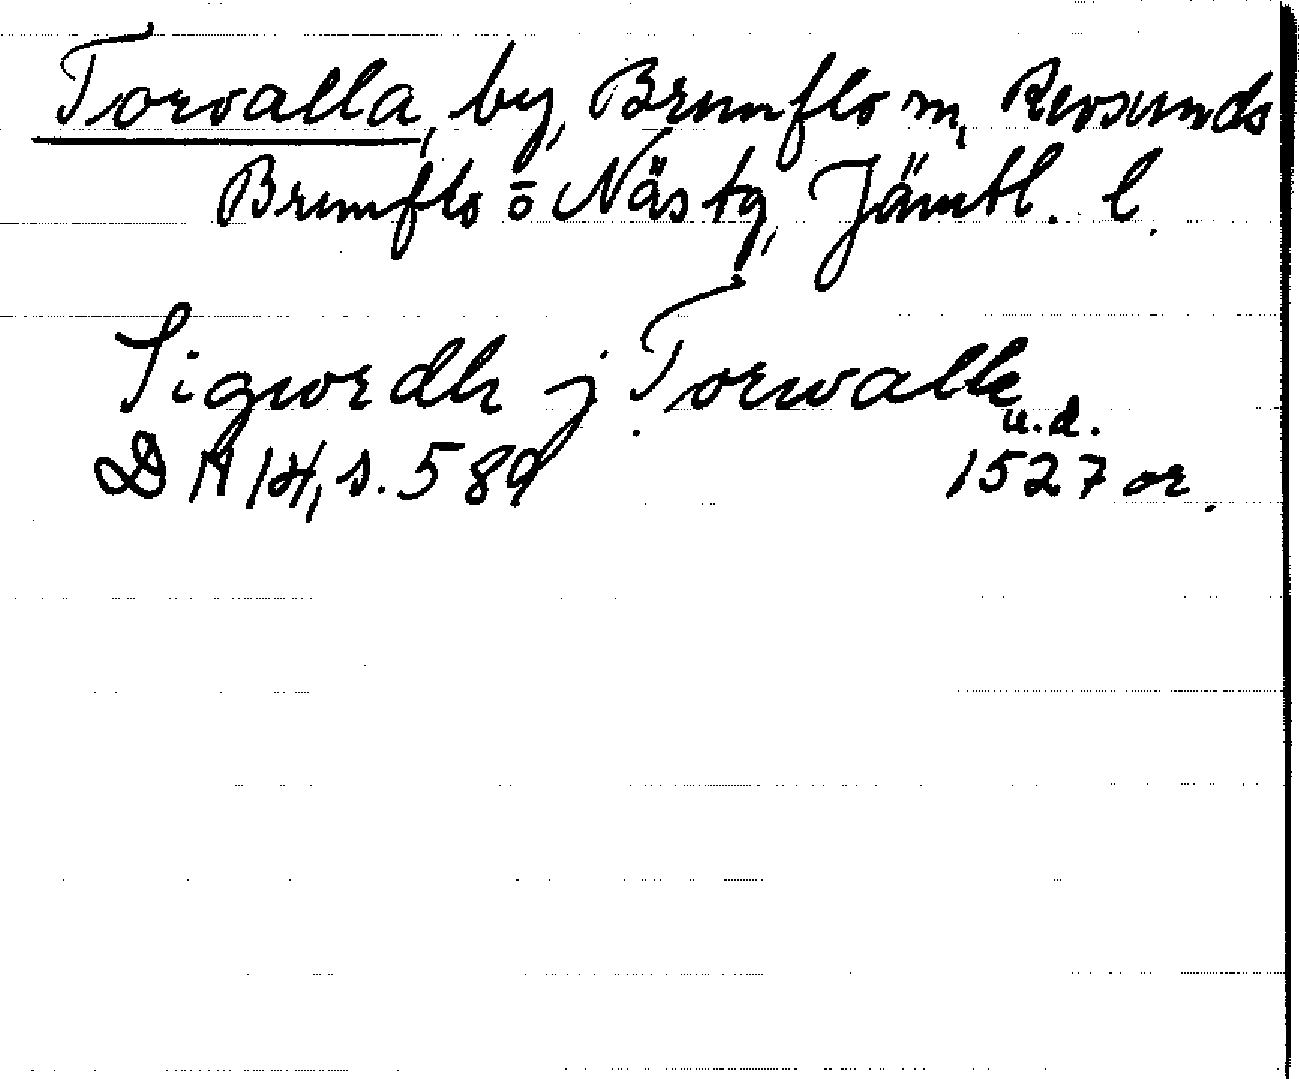 Torvalla, by, Brunflo sn, Revsunds
Brunflo o Näs tg, Jämtl. l.
Sigwordh j Torwalle
u.d.
DN 14, s. 589 1527 or.